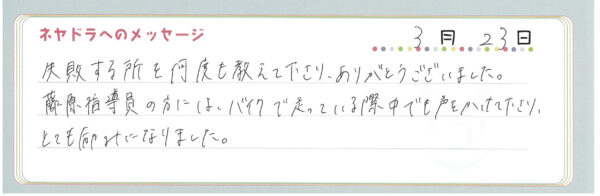 ネヤドラへのメッセージ
3月 23日
失敗する所を何度も教えて下さり、ありがとうございました。
藤原指導員の方には、バイクで走っている際中でも声をかけて下さり、
とても励みになりました。